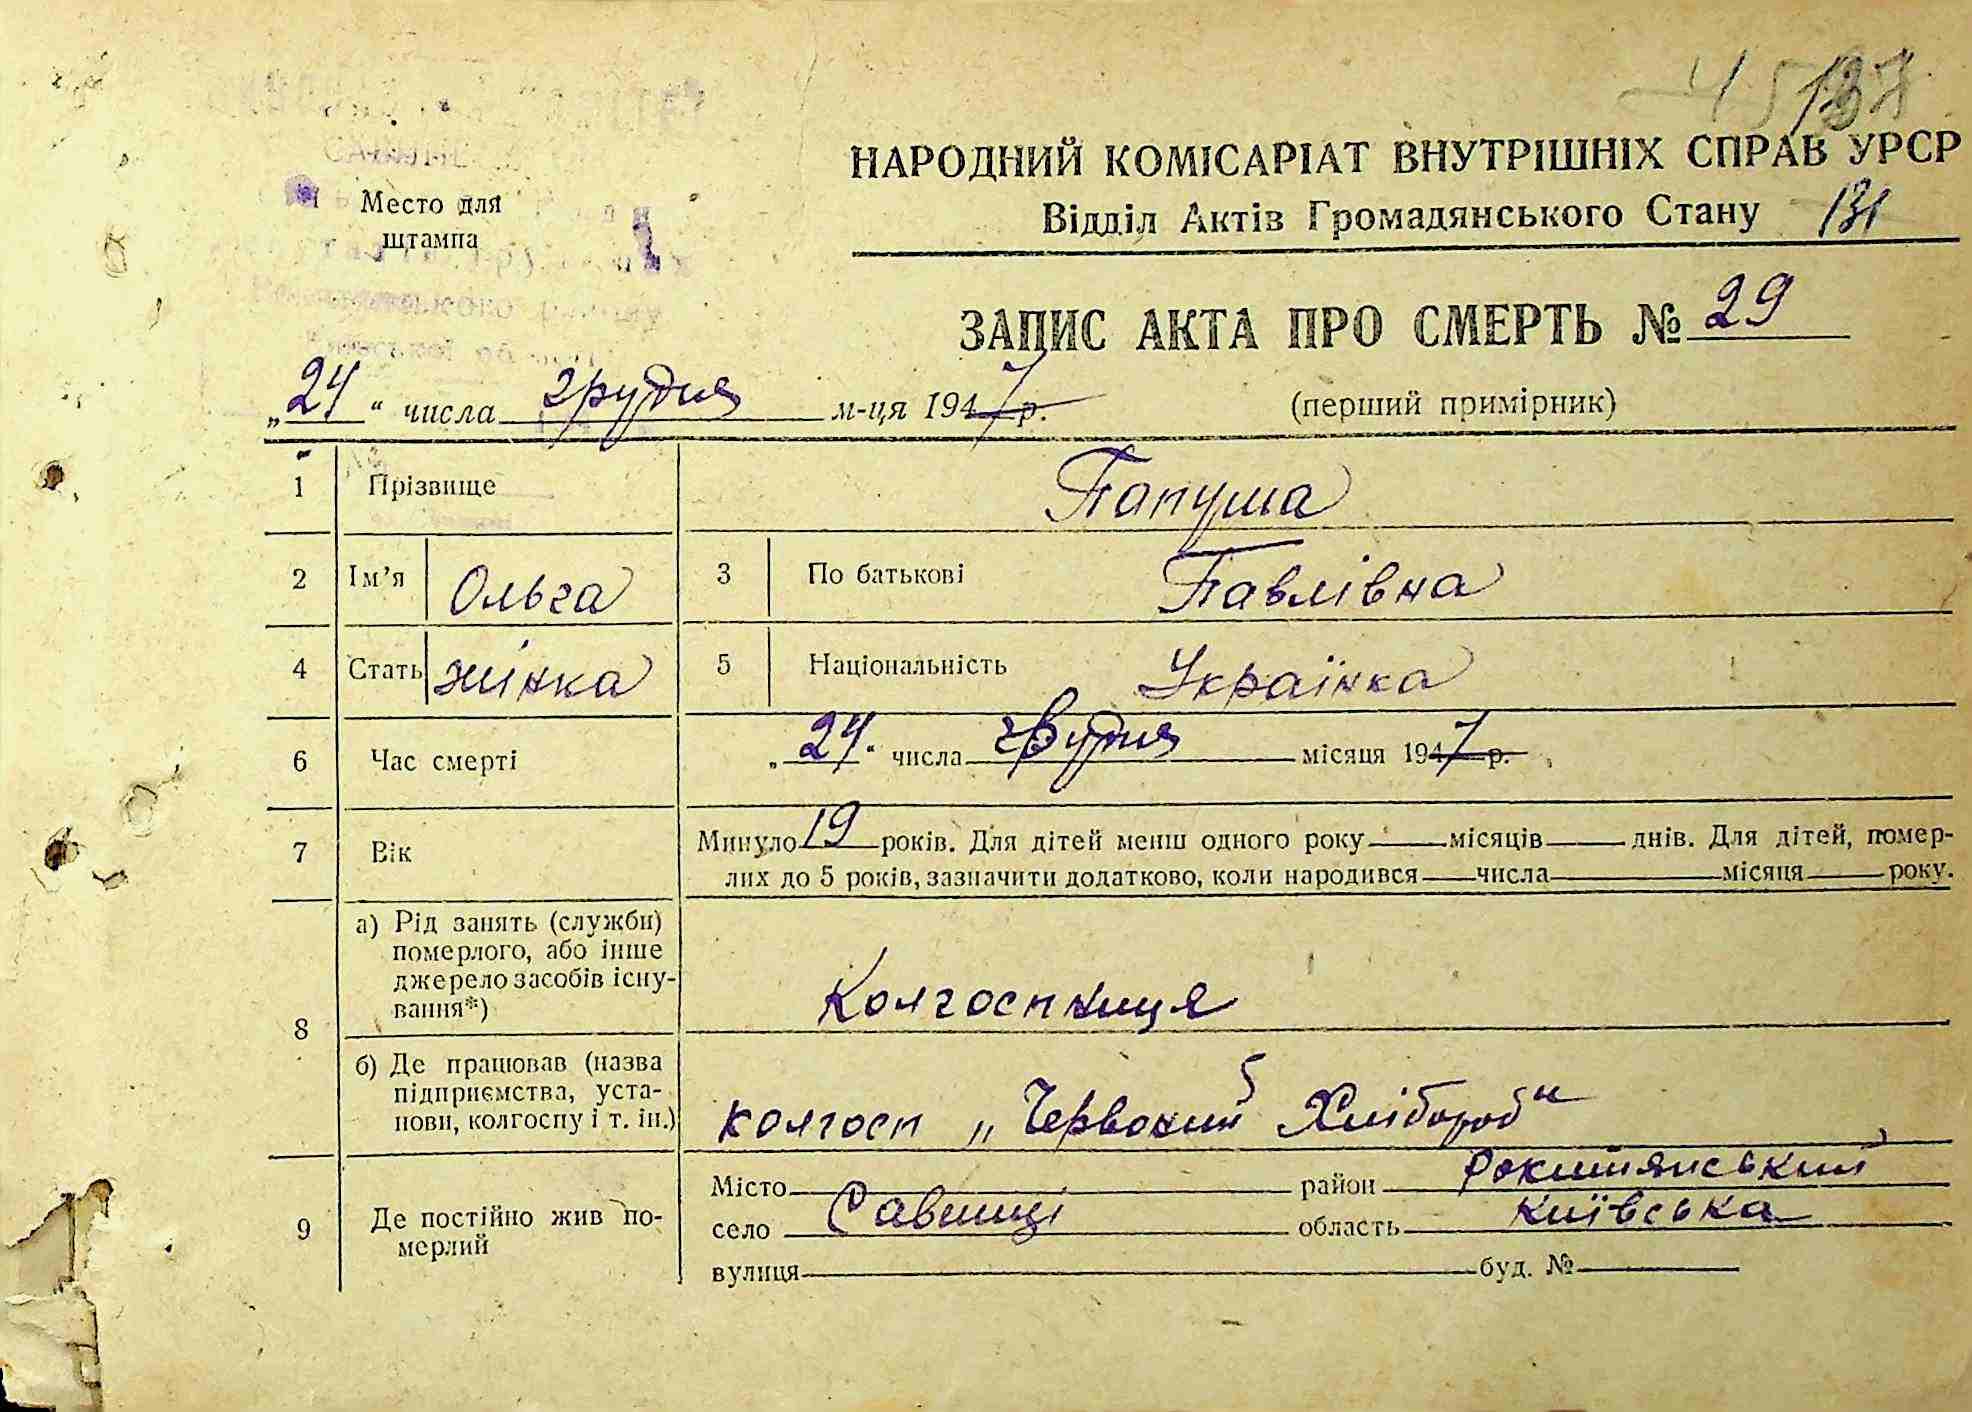 137
НАРОДНИЙ КОМІСАРІАТ ВНУТРІШНІХ СПРАВ УРСР
Відділ Актів Громадянського Стану 131
Место для
штампа
ЗАПИС АКТА ПРО СМЕРТЬ № 29
„24“ числа грудня м-ця 1947 р. (перший примірник)
1 Прізвище Папуша
2 Ім’я Ольга 3 По батькові Павлівна
4 Стать жінка 5 Національність Українка
6 Час смерті „24“ числа грудня місяця 1947 р.
7 Вік Минуло 19 років. Для дітей менш одного року місяців днів. Для дітей, помер-
лих до 5 років, зазначити додатково, коли народився числа місяця року.
8 а) Рід занять (служби)
померлого, або інше
джерело засобів існу-
вання*) Колгоспниця
б) Де працював (назва
підприємства, уста-
нови, колгоспу і т. ін.) колгосп „Червоний Хлібороб“
9 Де постійно жив по-
мерлий
Місто район Рокитянський
село Савинці область Київська
вулиця буд. №